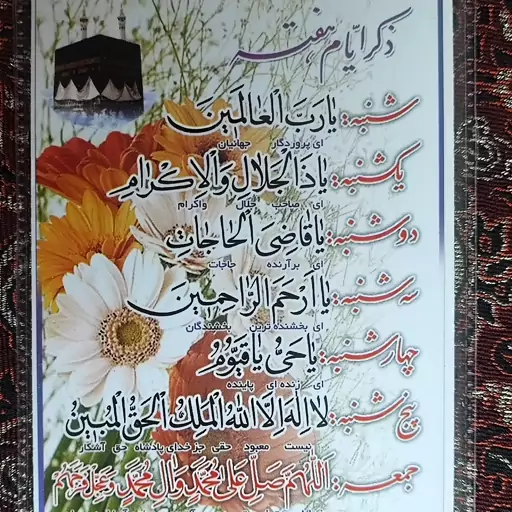 ذکر ایّام هفته
شنبه: یا رَبَّ الْعالَمین
ای پروردگار جهانیان
یکشنبه: یا ذَالْجَلالِ وَالْاِکْرامِ
ای صاحب جلال واکرام
دوشنبه: یا قاضِیَ الْحاجاتِ
ای برآرنده حاجات
سه شنبه: یا اَرْحَمَ الرّاحِمینَ
ای بخشنده ترین بخشندگان
چهارشنبه: یا حَیُّ یا قَیُّومُ
ای زنده ای پاینده
پنج شنبه: لا اِلهَ اِلَّا اللهُ الْمَلِکُ الْحَقُّ الْمُبینُ
نیست معبود حقی جز خدای پادشاه حق آشکار
جمعه: اَللّهُمَّ صَلِّ عَلی مُحَمَّدٍ وَآلِ مُحَمَّدٍ وَعَجِّلْ فَرَجَهُمْ